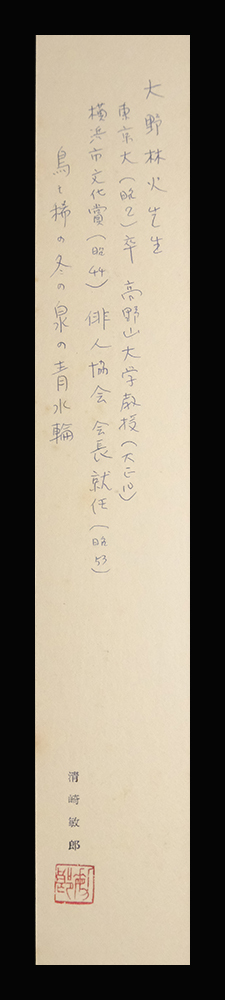 大野林火先生
東京大(昭2)卒 高野山大学教授(大正10)
横浜市文化賞(昭44) 俳人協会会長就任(昭53)
鳥と梯の冬の泉の青水輪
清崎敏郎